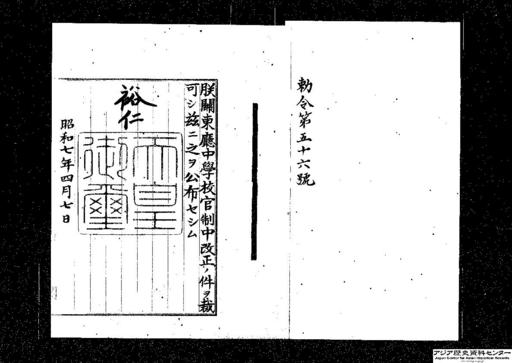 勅令第五十六號
朕關東廳中學校官制中改正ノ件ヲ裁
可シ玆ニ之ヲ公布セシム
裕仁
天皇
御璽
昭和七年四月七日
アジア歴史資料センター
Japan Center for Asian Historical Records